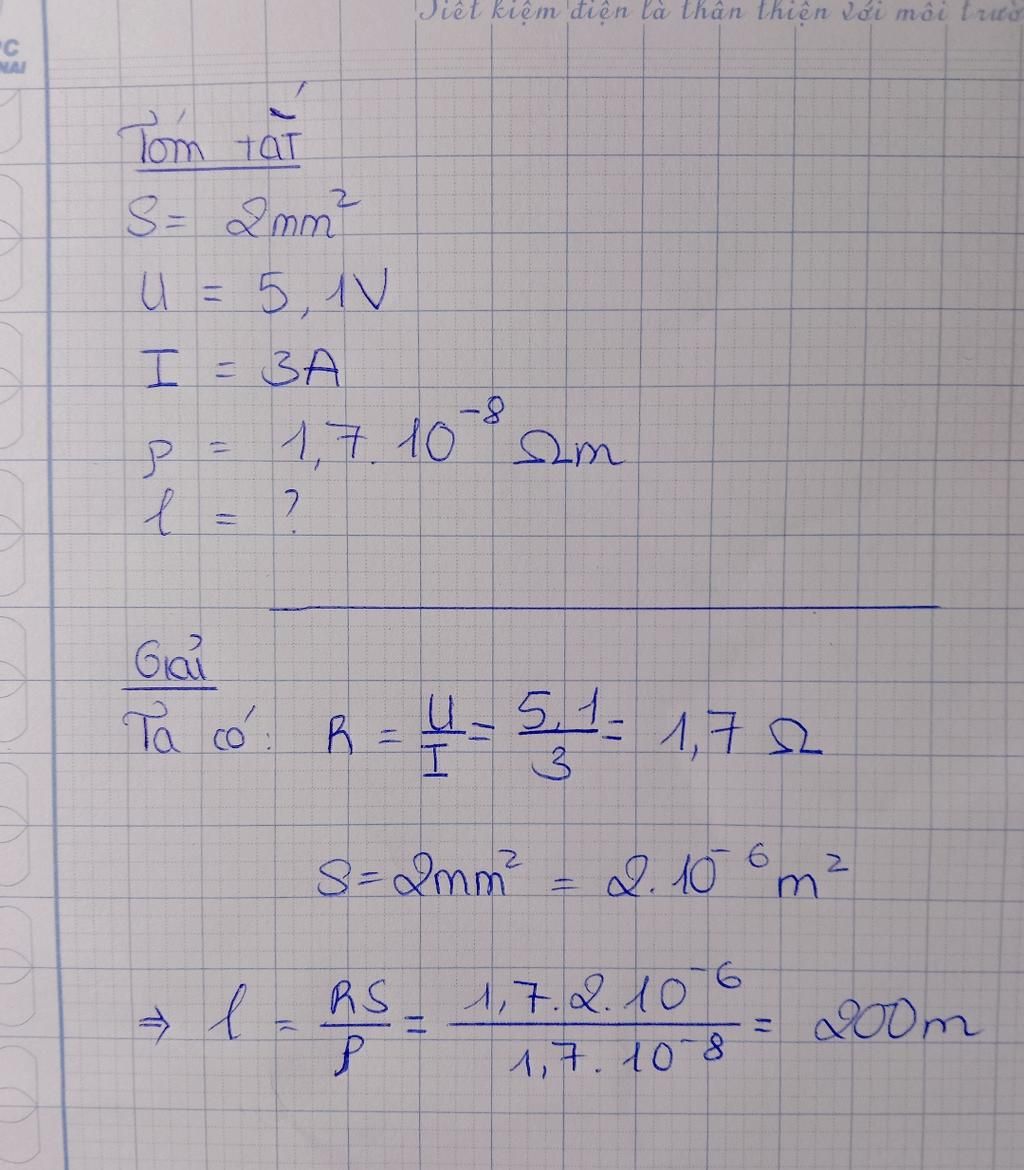 Tiết kiệm điện là thân thiện với môi trườ
PC
NAI
Tóm tắt
S = 2mm²
U = 5,1V
I = 3A
ρ = 1,7.10⁻⁸ Ωm
l = ?
Giải
Ta có: R = U/I = 5,1/3 = 1,7 Ω
S = 2mm² = 2.10⁻⁶ m²
⇒ l = RS/ρ = 1,7.2.10⁻⁶/1,7.10⁻⁸ = 200m